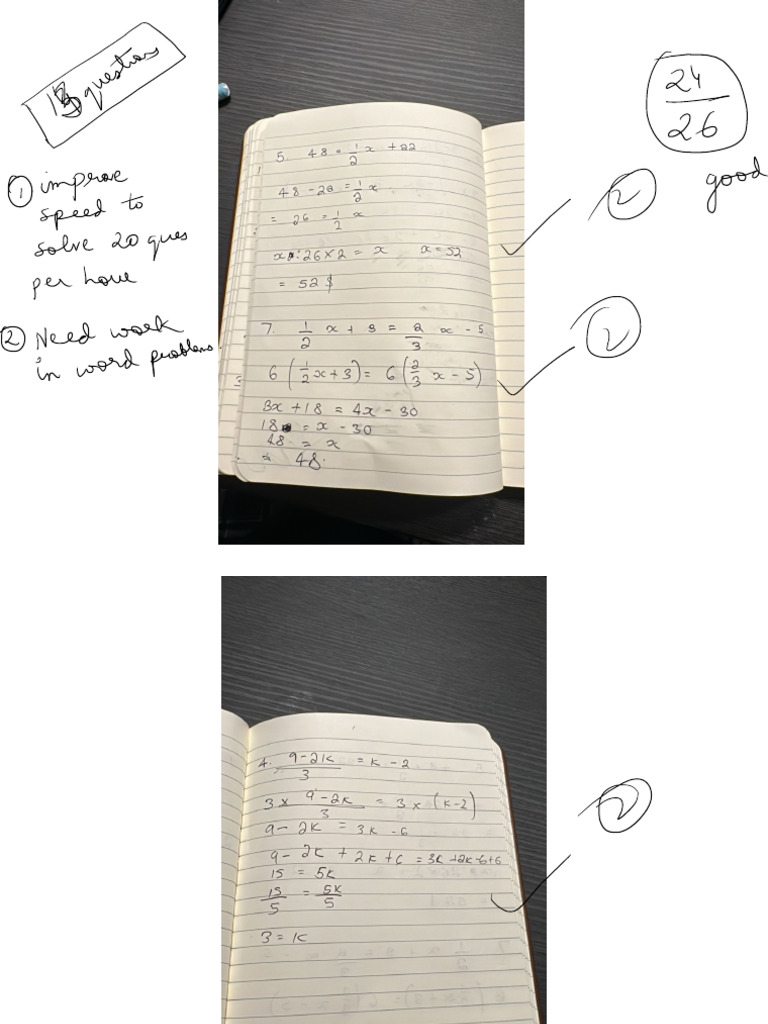 13 questions
① improve
speed to
solve 20 ques
per houe
② Need work
in word problems
24
26
good
5. 48 = 1/2 x + 22
48 - 22 = 1/2 x
= 26 = 1/2 x
x : 26 × 2 = x x = 52
= 52 $
2
7. 1/2 x + 3 = 2/3 x - 5
6 (1/2 x + 3) = 6 (2/3 x - 5)
3x + 18 = 4x - 30
18 = x - 30
48 = x
= 48.
2
4. 9-2k/3 = k - 2
3 × 9-2k/3 = 3 × (k-2)
9 - 2k = 3k - 6
9 - 2k + 2k + 6 = 3k + 2k - 6 + 6
15 = 5k
15/5 = 5k/5
3 = k
2